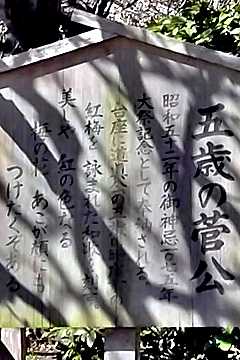 五歳の菅公
昭和五十二年の御神忌一〇七五年
大祭記念として奉納される。
台座に道真公の
紅梅を詠まれた和歌を刻す
美しや 紅の色なる
梅の花 あこが顔にも
つけたくぞある